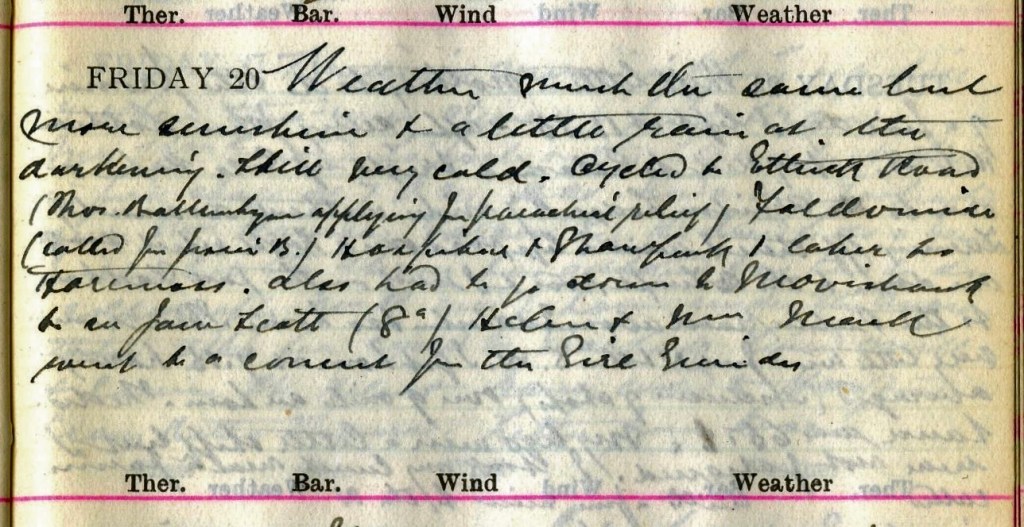 Ther. Bar. Wind Weather
FRIDAY 20 Weather much the same but
more sunshine & a little rain at the
darkening. Still very cold. Cycled to Ettrick Road
(Thos. applying for parochial relief)
(called for B.) & & later to
. Also had to go down to
to see Jane Scott (8a) Helen & Mrs
went to a concert for the Girl Guides
Ther. Bar. Wind Weather